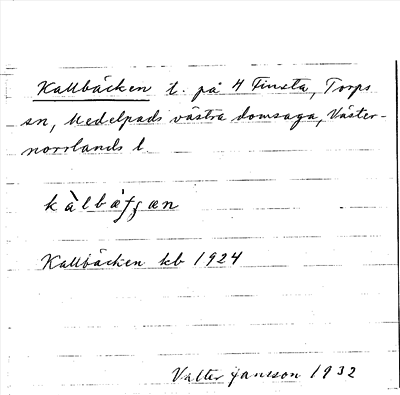 Kallbäcken t. på 4 Finsta, Torps
sn, Medelpads västra domsaga, Väster-
norrlands l
kàlbæ̀ʃʃæn
Kallbäcken kb 1924
Valter Jansson 1932